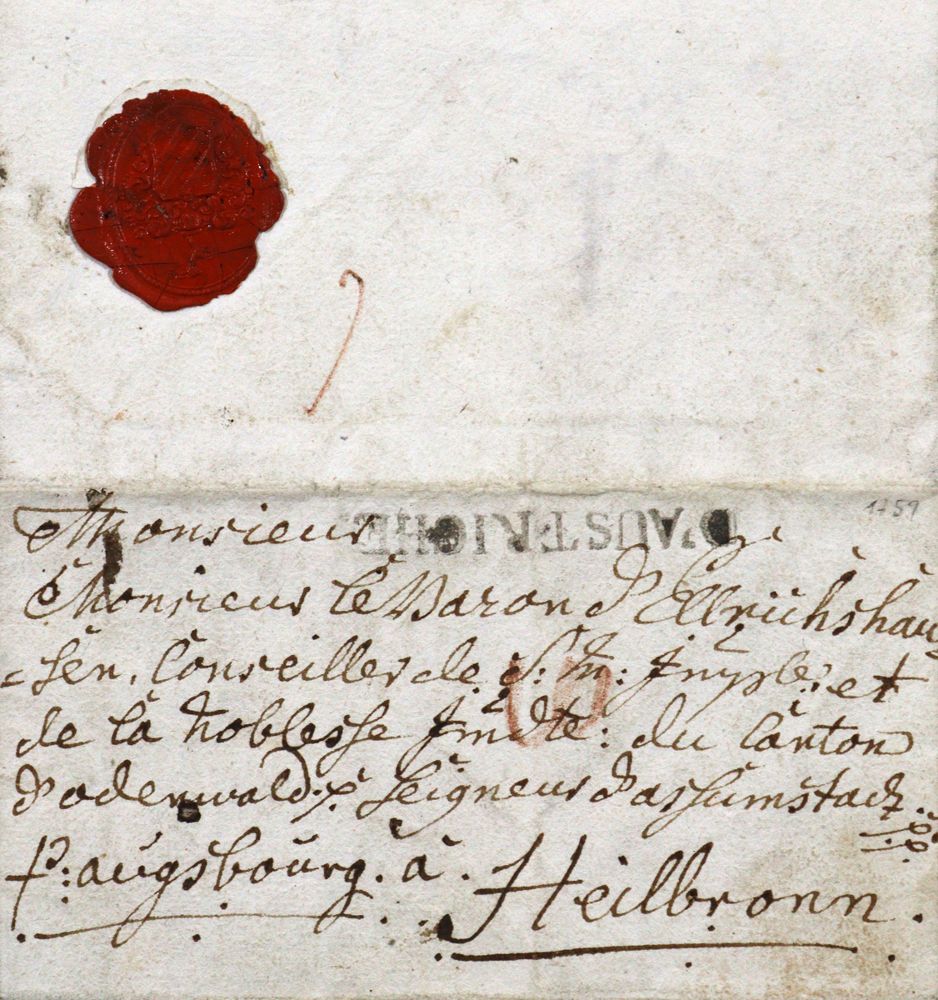 1759
D'AUSTRICHE
Monsieur
Monsieur le Baron d'Ellrichshau
=sen, Conseiller de S: M: Imple: et
de la noblesse Imdte: du Canton
d'odenwald, Seigneur d'assumstadt
p: augsbourg. à. Heilbronn.